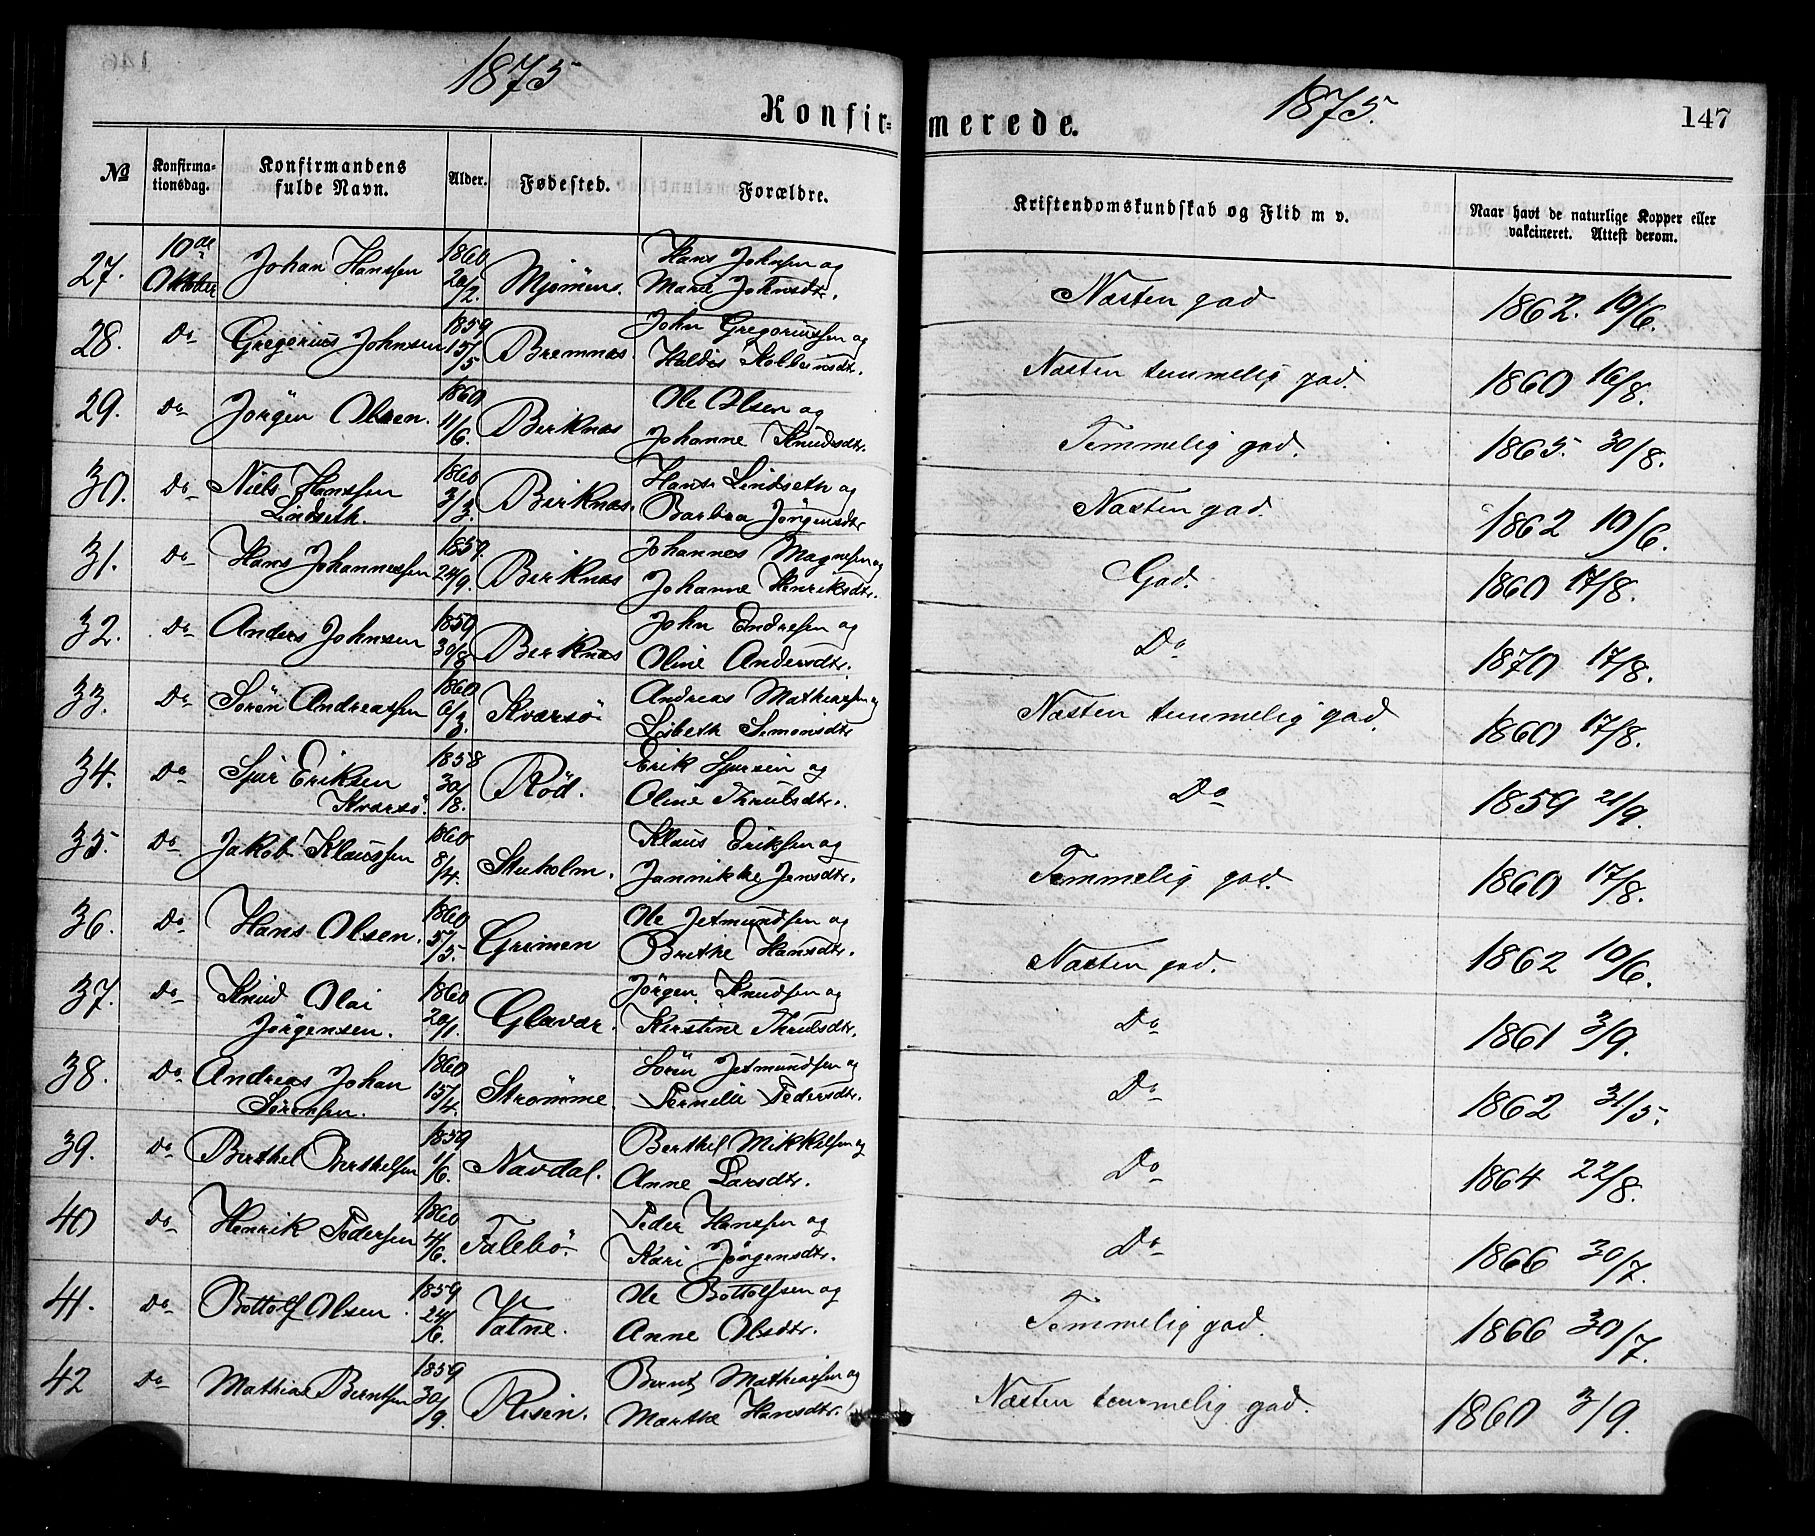 1875
1875.
147
Konfir=
merede.
№ Konfirma-tionsdag. Konfirmandens fulde Navn. Alder. Fødested. Forældre. Kristendomskundskab og Flid m v. Naar havt de naturlige Kopper eller vakcineret. Attest derom.
27. 10de Johan Hanssen 1860 Mjømens. Hans Johnsen og Næsten god 1862. 10/6.
Oktober 20/2. Marie Johnsdtr.
28. Do Gregorius Johnsen 1859 Bremnæs. John Gregoriussen og Næsten temmelig god. 1860 16/8.
15/5 Haldis Kolbensdtr.
29. Do Jørgen Olsen. 1860 Birknæs Ole Olsen og Temmelig god. 1865. 30/8.
11/6. Johanne Knudsdtr.
30. Do Niels Hanssen 1860 Birknæs. Hans Lindseth og Næsten god. 1862 10/6.
Lindseth. 3/3. Barbra Jørgensdtr
31. Do Hans Johannessen 1859. Birknæs Johannes Magnesen og God. 1860 17/8.
24/9. Johanne Henriksdtr.
32. Do Anders Johnsen 1859 Birknæs John Endresen og Do 1870 17/8.
30/8 Oline Andersdtr.
33. Do Søren Andreassen 1860 Kværsø Andreas Mathiassen og Næsten temmelig god. 1860 17/8.
6/3. Lisbeth Simonsdtr
34. Do Sjur Eriksen 1858 Rød. Erik Sjursen og Do 1859 21/9.
Kværsø. 30/8. Oline Thrulsdtr.
35. Do Jakob Klaussen 1860 Stuholm. Klaus Eriksen og Temmelig god. 1860 17/8.
8/4. Jannikke Jensdtr.
36. Do Hans Olsen. 1860 Grimen Ole Jetmundsen og Næsten god. 1862 10/6.
5/5. Brithe Hansdtr.
37. Do Knud Olai 1860 Glavær. Jørgen Knudsen og Do 1861 3/9.
Jørgensen. 20/1. Kerstine Thrulsdtr.
38. Do Andreas Johan 1860 Strømme. Søren Jetmundsen og Do 1862 31/5.
Sørensen. 15/4. Pernille Pedersdtr.
39. Do Berthel Berthelsen 1859 Navdal. Berthel Mikkelsen og Do 1864 22/8.
1/6. Anne Larsdtr.
40 Do Henrik Pedersen 1860 Talebø. Peder Hanssen og Do 1866 30/7.
4/6. Kari Jørgensdtr.
41. Do Bottolf Olsen 1859 Vatne. Ole Bottolfsen og Temmelig god. 1866 30/7.
24/6. Anne Olsdtr.
42 Do Mathias Berntsen 1859 Risen. Bernt Mathiassen og Næsten temmelig god. 1860 3/9.
30/9. Marthe Hansdtr.